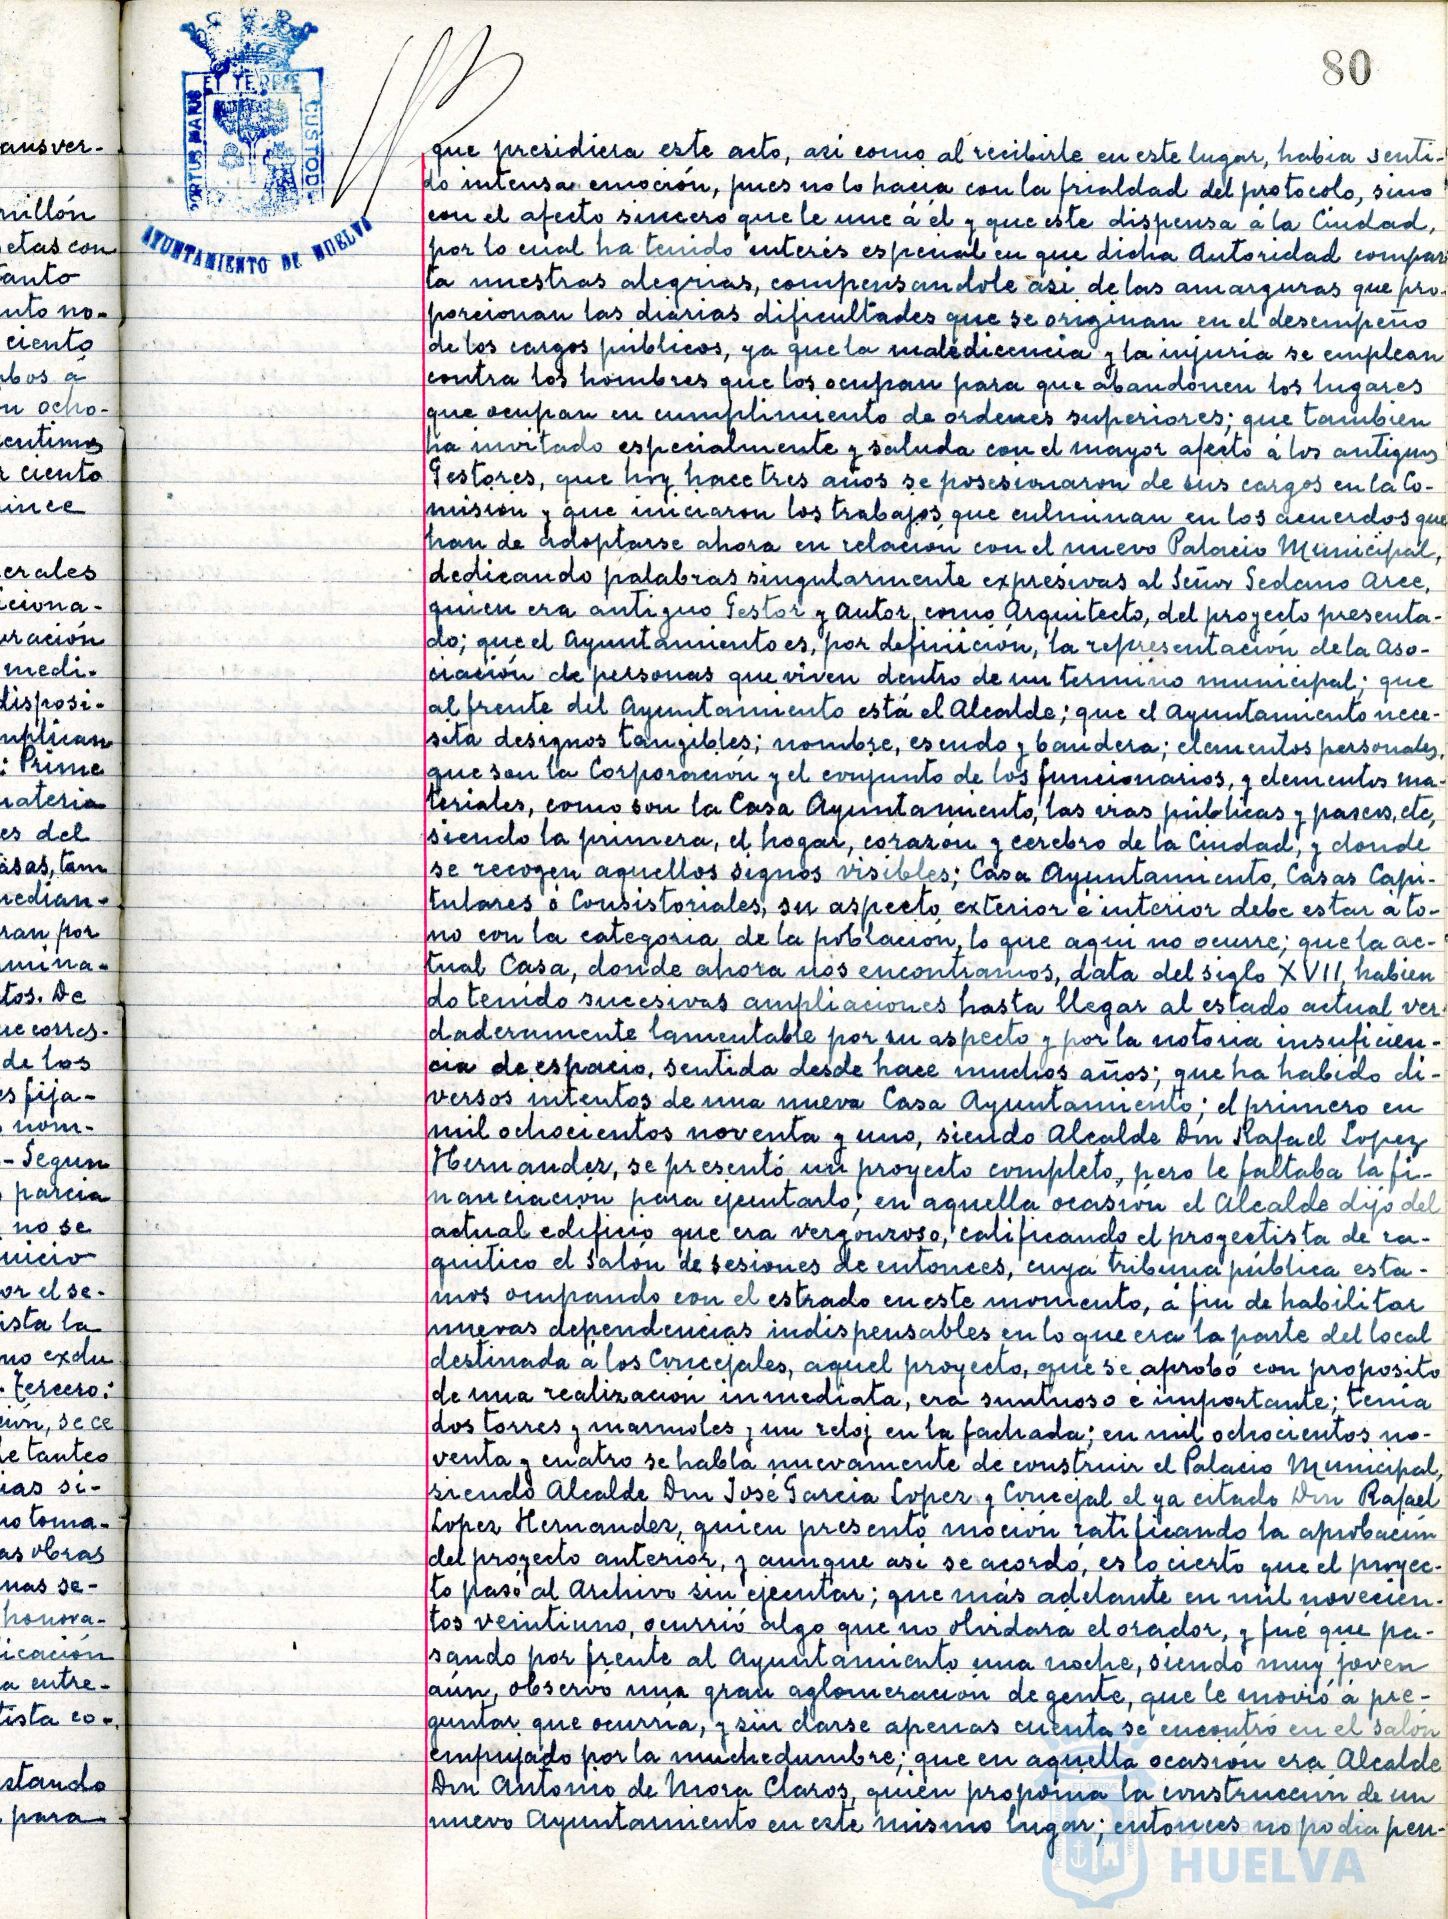 80
PORTUS MARIS
ET TERRE
CUSTOD
AYUNTAMIENTO DE HUELVA
que presidiera este acto, asi como al recibirle en este lugar, habia senti-
do intensa emoción, pues no lo hacia con la frialdad del protocolo, sino
con el afecto sincero que le une á él y que este dispensa á la Ciudad,
por lo cual ha tenido interés especial en que dicha Autoridad compar
ta nuestras alegrias, compensandole asi de las amarguras que pro-
porcionan las diarias dificultades que se originan en el desempeño
de los cargos públicos, ya que la maledicencia y la injuria se emplean
contra los hombres que los ocupan para que abandonen los lugares
que ocupan en cumplimiento de ordenes superiores; que tambien
ha invitado especialmente y saluda con el mayor afecto á los antiguos
Gestores, que hoy hace tres años se posesionaron de sus cargos en la Co-
misión y que iniciaron los trabajos que culminan en los acuerdos que
han de adoptarse ahora en relación con el nuevo Palacio Municipal,
dedicando palabras singularmente expresivas al Señor Sedano Arce,
quien era antiguo Gestor y Autor, como Arquitecto, del proyecto presenta-
do; que el Ayuntamiento es, por definición, la representación de la Aso-
ciación de personas que viven dentro de un termino municipal; que
al frente del Ayuntamiento está el Alcalde; que el Ayuntamiento nece-
sita designos tangibles; nombre, escudo y bandera; elementos personales,
que son la Corporación y el conjunto de los funcionarios, y elementos ma-
teriales, como son la Casa Ayuntamiento, las vias públicas y paseos, etc,
siendo la primera, el hogar, corazón y cerebro de la Ciudad, y donde
se recogen aquellos signos visibles; Casa Ayuntamiento, Casas Capi-
tulares ó Consistoriales, su aspecto exterior é interior debe estar á to-
no con la categoria de la población, lo que aqui no ocurre; que la ac-
tual Casa, donde ahora nos encontramos, data del siglo XVII, habien
do tenido sucesivas ampliaciones hasta llegar al estado actual ver-
daderamente lamentable por su aspecto y por la notoria insuficien-
cia de espacio, sentida desde hace muchos años; que ha habido di-
versos intentos de una nueva Casa Ayuntamiento; el primero en
mil ochocientos noventa y uno, siendo Alcalde Don Rafael Lopez
Hernandez, se presentó un proyecto completo, pero le faltaba la fi-
nanciación para ejecutarlo; en aquella ocasión el Alcalde dijo del
actual edificio que era vergonzoso, calificando el proyectista de ra-
quitico el Salón de sesiones de entonces, cuya tribuna pública esta-
mos ocupando con el estrado en este momento, á fin de habilitar
nuevas dependencias indispensables en lo que era la parte del local
destinada á los Concejales, aquel proyecto, que se aprobó con proposito
de una realización inmediata, era suntuoso é importante; tenia
dos torres y marmoles y un reloj en la fachada; en mil ochocientos no-
venta y cuatro se habla nuevamente de construir el Palacio Municipal,
siendo Alcalde Don José Garcia Lopez y Concejal el ya citado Don Rafael
Lopez Hernandez, quien presentó moción ratificando la aprobación
del proyecto anterior, y aunque asi se acordó, es lo cierto que el proyec-
to pasó al Archivo sin ejecutar; que más adelante en mil novecien-
tos veintiuno, ocurrió algo que no olvidará el orador, y fué que pa-
sando por frente al Ayuntamiento una noche, siendo muy joven
aún, observó una gran aglomeración de gente, que le movió á pre-
guntar que ocurria, y sin darse apenas cuenta se encontró en el salón
empujado por la muchedumbre; que en aquella ocasión era Alcalde
Don Antonio de Mora Claros, quien proponia la construcción de un
nuevo Ayuntamiento en este mismo lugar; entonces no podia pen-
HUELVA